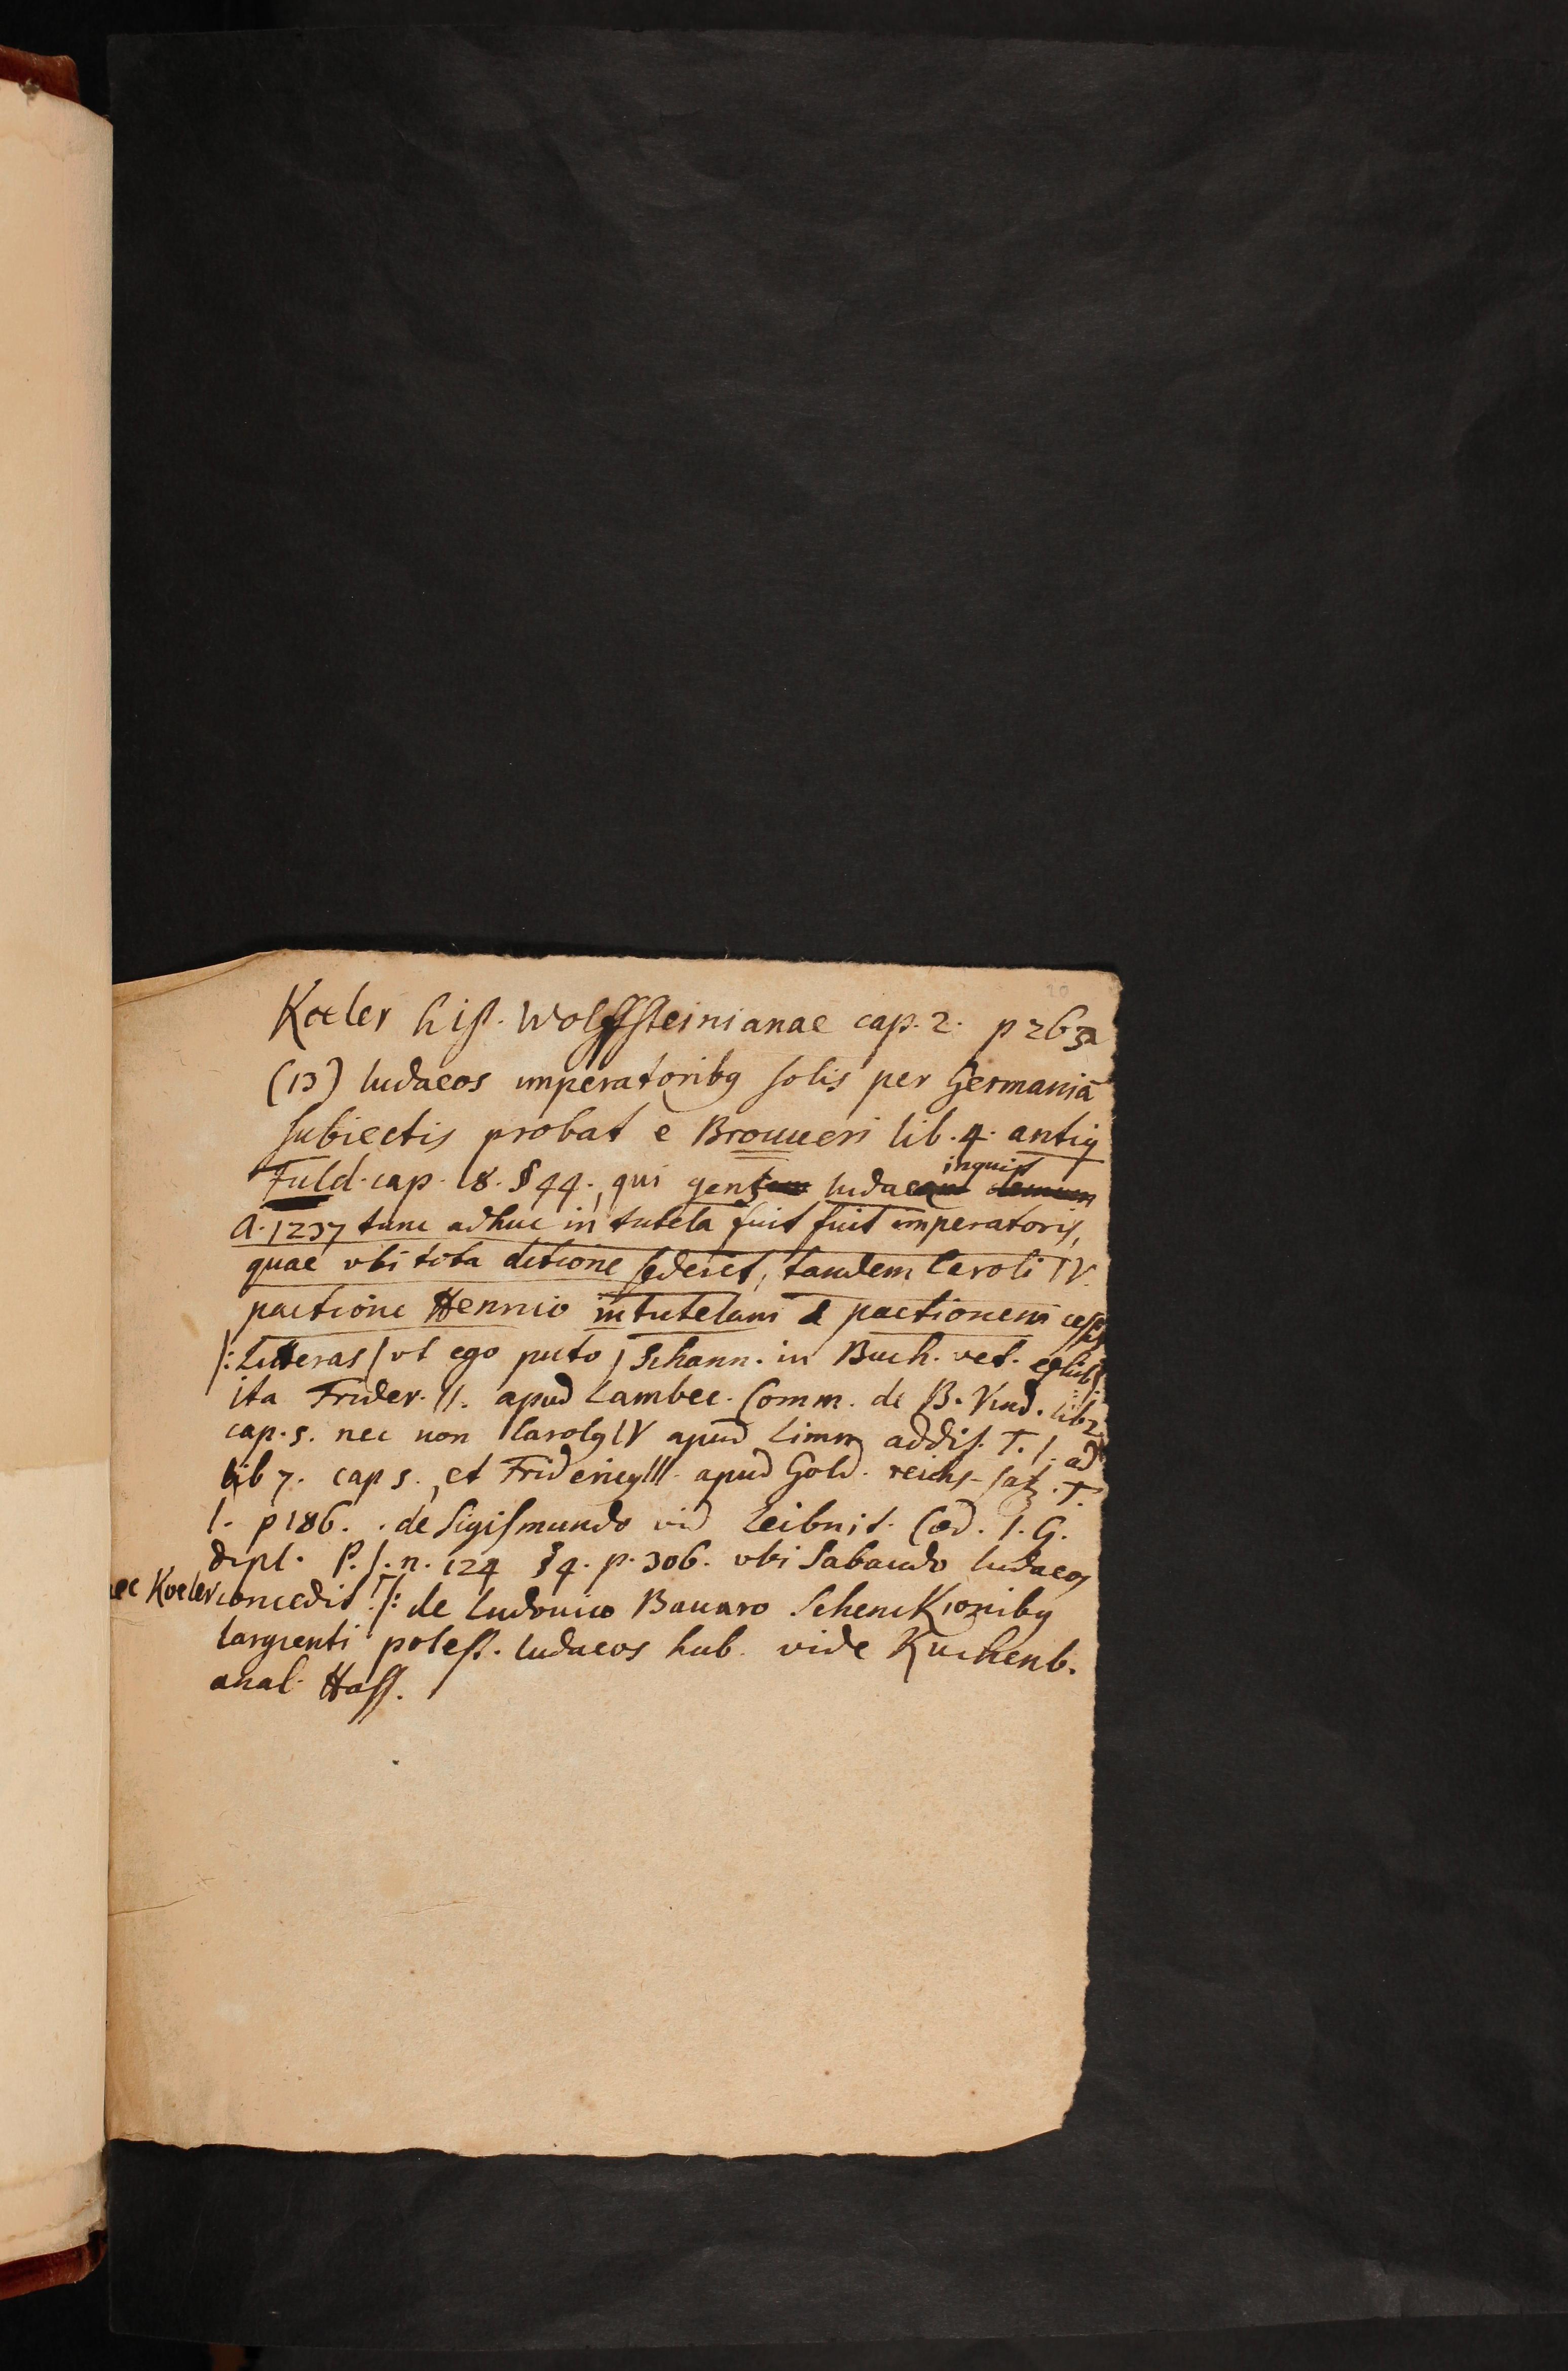 20
Koeler hist. Wolffsteinianae cap. 2. p 263
(13) Iudaeos imperatoribꝫ solis per Germaniā
subiectis probat e Brouueri lib. 4. antiq
Fuld. cap. 18. § 44., qui gens Iudaea inquit
A. 1237 tunc adhuc in tutela fuit fuit imperatoris,
quae vbi tota ditione sederet, tandem Caroli IV.
pactione Hennio in tutelam & pactionem cessit
/: Litteras / vt ego puto / Schann. in Buch. vet. exhib.
ita Frider. II. apud Lambec. Comm. de B. Vind. lib 2
cap. 5. nec non Carolꝫ IV apud Limn addis. T. 1. ad
lib 7. cap 5., et Fridericꝫ III. apud Gold. reichs-satz. T.
1. p 186. . de Sigismundo vid Leibnit. Cod. I. G.
dipl. P. 1. n. 124 § 4. p. 306. vbi Sabaudo Iudaeos
Koeler concedit. /: de Ludouico Bauaro Schenckionibꝫ
largienti potest. Iudaeos hab. vide Kuchenb.
anal. Hass.